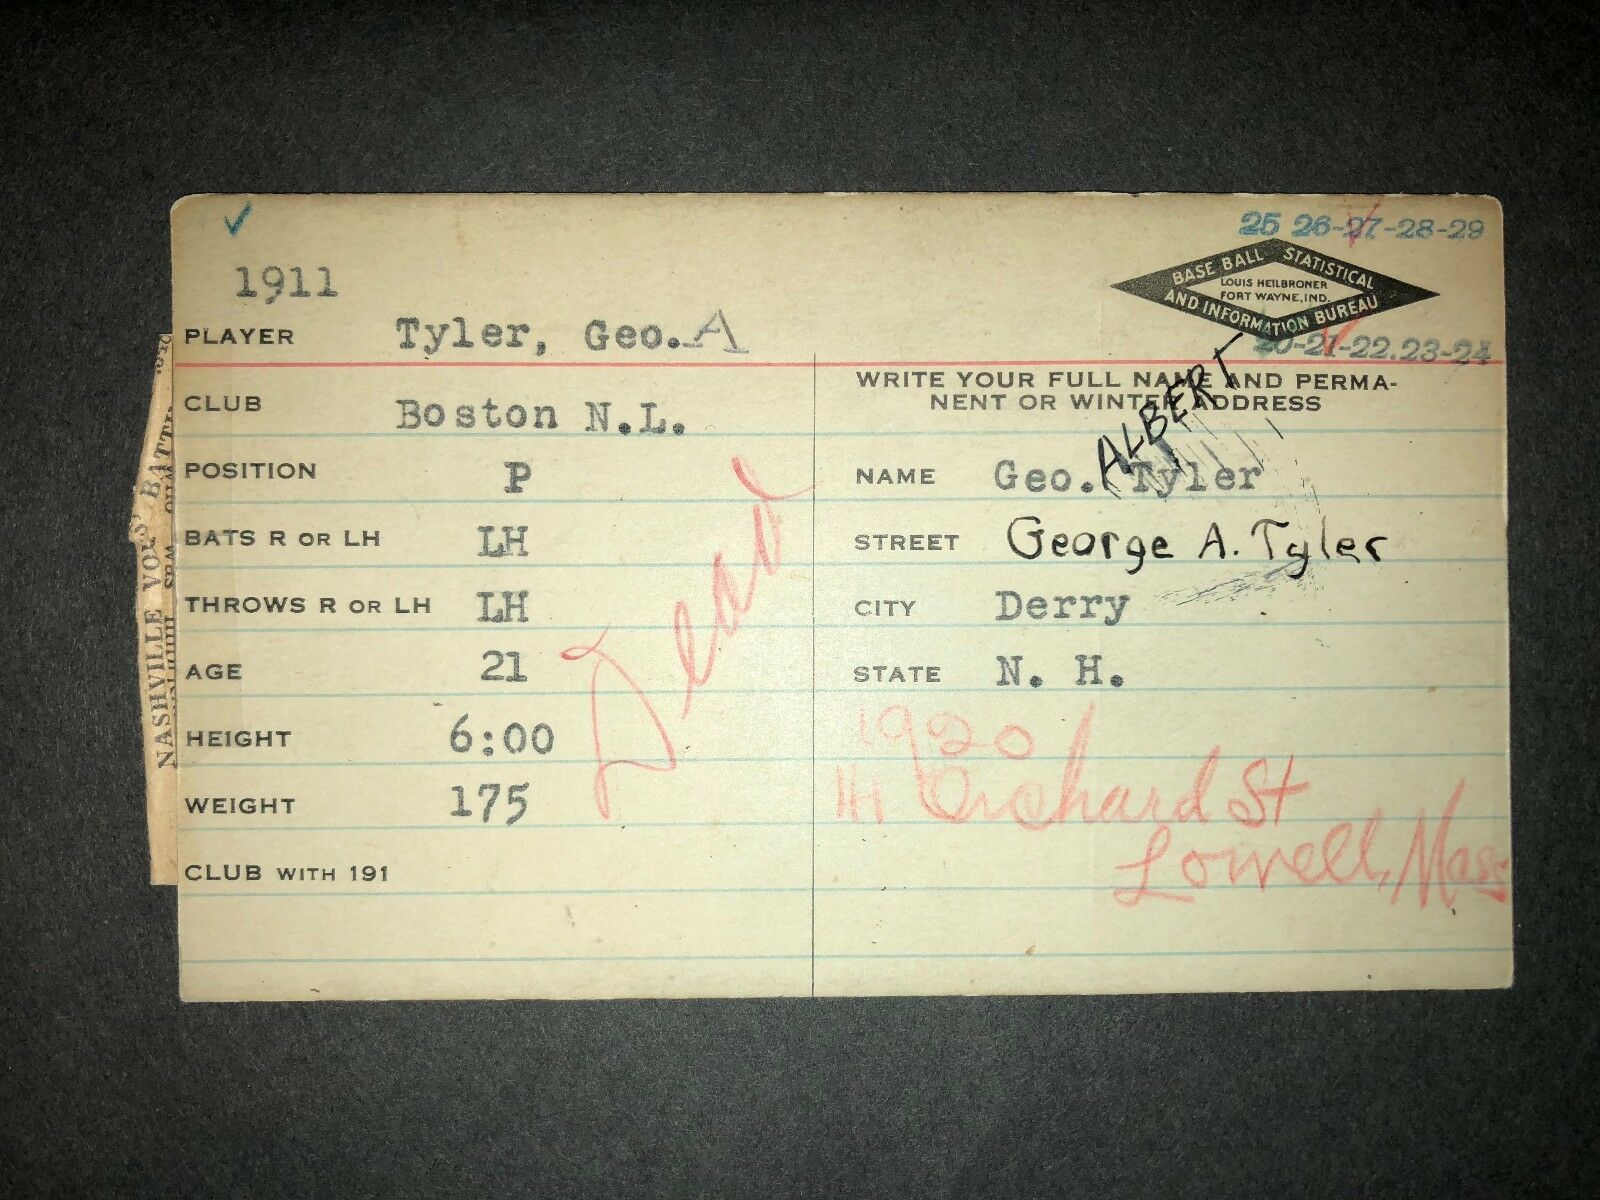 25 26-27-28-29
1911
BASE BALL STATISTICAL
LOUIS HEILBRONER
FORT WAYNE, IND.
AND INFORMATION BUREAU
PLAYER Tyler, Geo. A
20-21-22.23-24
CLUB Boston N.L.
WRITE YOUR FULL NAME AND PERMA-
NENT OR WINTER ADDRESS
ALBERT
POSITION P
NAME Geo. Tyler
BATS R OR LH LH
STREET George A. Tyler
THROWS R OR LH LH
CITY Derry
AGE 21
STATE N. H.
Dead
HEIGHT 6:00
1920
WEIGHT 175
Orchard St
Lowell, Mass
CLUB WITH 191
NASHVILLE VOLS'